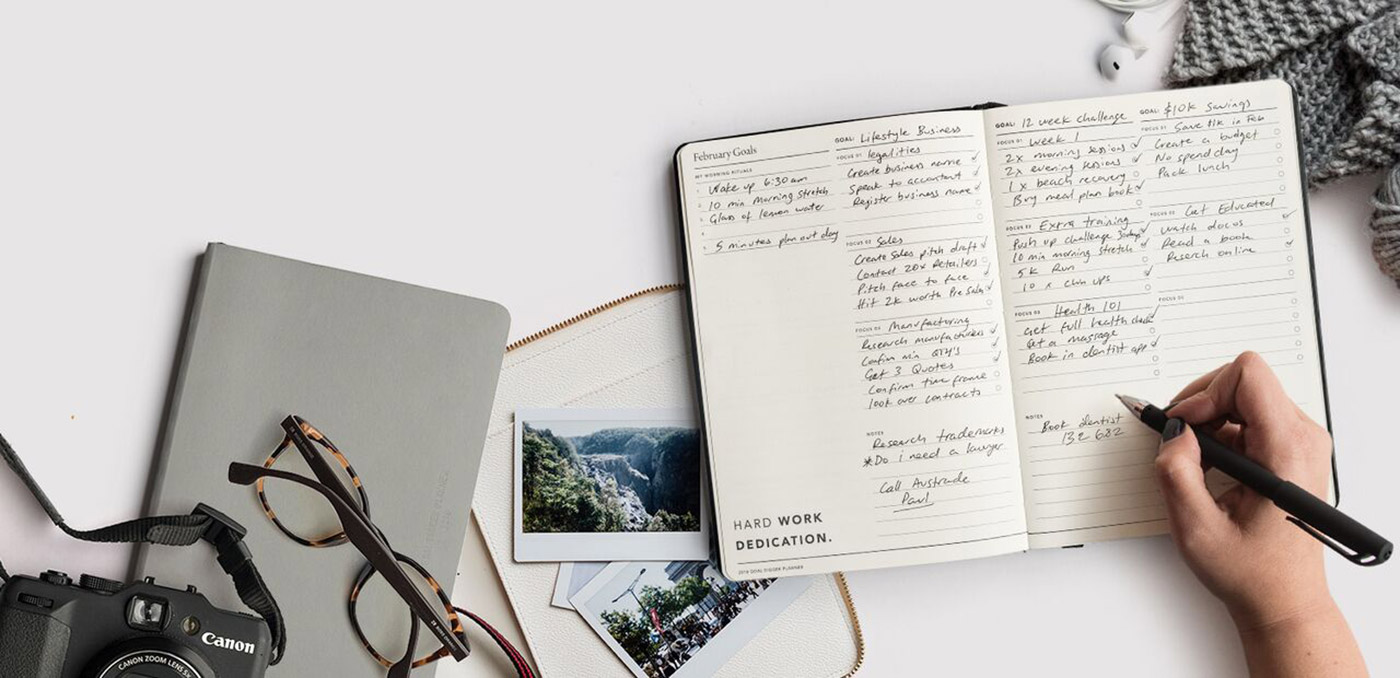 February Goals
MY MORNING RITUALS
Wake up 6:30am
10 min Morning Stretch
Glass of lemon water
5 minutes plan out day
HARD WORK
DEDICATION.
2018 GOAL DIGGER PLANNER
GOAL: Lifestyle Business
FOCUS 01 legalities
Create business name
Speak to accountant
Register business name
FOCUS 02 Sales
Create Sales pitch draft
Contact 20x Retailers
Pitch face to face
Hit 2k worth Pre Sales
FOCUS 03 Manufacturing
Research manufacturers
Confirm min QTY's
Get 3 Quotes
Confirm time frame
look over contracts
NOTES
Research trademarks
*Do i need a lawyer
Call Austrade
Paul
GOAL: 12 week challenge
FOCUS 01 Week 1
2x morning sessions
2x evening sessions
1x beach recovery
Buy meal plan book
FOCUS 02 Extra training
Push up challenge 30days
10 min morning stretch
5k Run
10 x chin ups
FOCUS 03 Health 101
Get full health check
Get a massage
Book in dentist app
NOTES
Book dentist
132 682
GOAL: $10k Savings
FOCUS 01 Save $1k in Feb
Create a budget
No spend day
Pack lunch
FOCUS 02 Get Educated
Watch docos
Read a book
Reserch online
FOCUS 03
Canon
CANON ZOOM LENS 5x